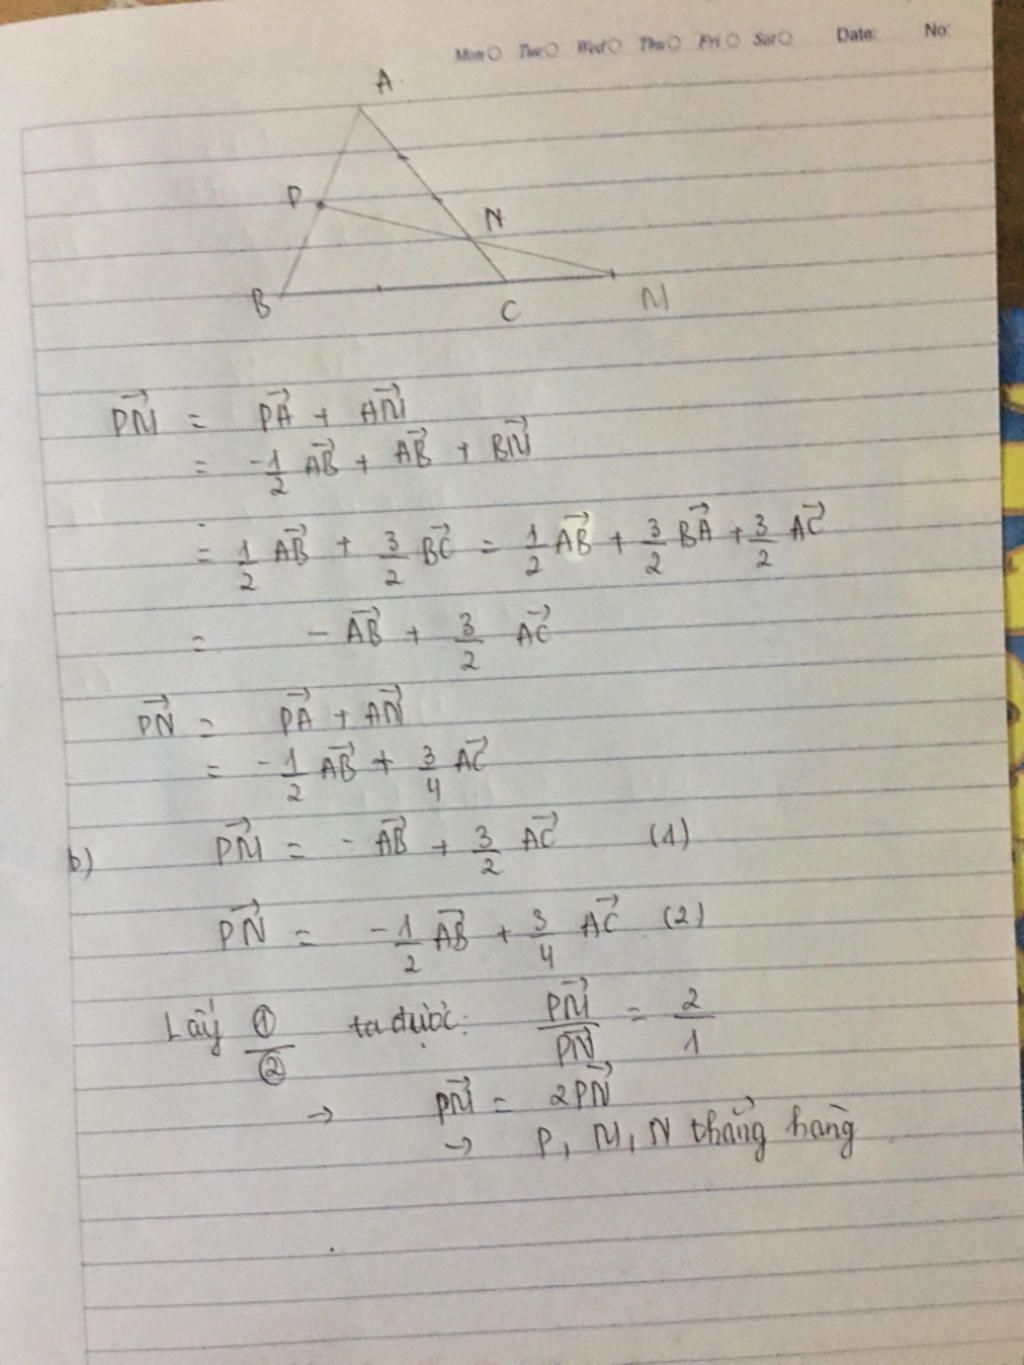 Mon Tue Wed Thu Fri Sat Date: No:
A
P
N
B
C
M
PM→ = PA→ + AM→
= -1/2 AB→ + AB→ + BM→
= 1/2 AB→ + 3/2 BC→ = 1/2 AB→ + 3/2 BA→ + 3/2 AC→
= - AB→ + 3/2 AC→
PN→ = PA→ + AN→
= -1/2 AB→ + 3/4 AC→
b) PM→ = - AB→ + 3/2 AC→ (1)
PN→ = -1/2 AB→ + 3/4 AC→ (2)
Lấy ①/② ta được: PM→/PN→ = 2/1
→ PM→ = 2PN→
→ P, M, N thẳng hàng